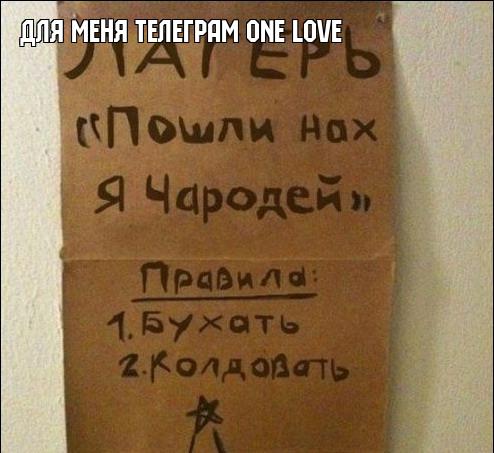 ДЛЯ МЕНЯ ТЕЛЕГРАМ ONE LOVE
ЛАГЕРЬ
«Пошли нах
Я Чародей»
Правила:
1. Бухать
2. Колдовать